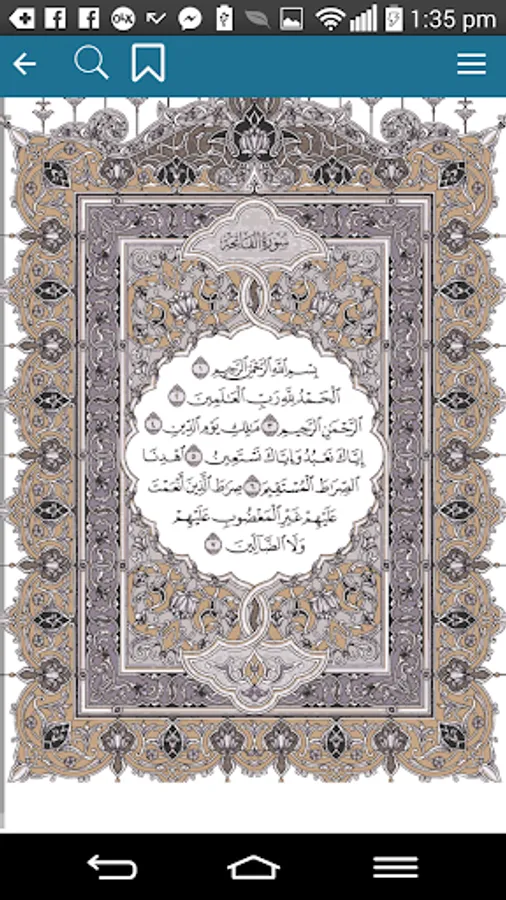 1:35 pm
سورة الفاتحة
بِسْمِ اللَّهِ الرَّحْمَٰنِ الرَّحِيمِ ١
الْحَمْدُ لِلَّهِ رَبِّ الْعَالَمِينَ ٢
الرَّحْمَٰنِ الرَّحِيمِ ٣ مَالِكِ يَوْمِ الدِّينِ ٤
إِيَّاكَ نَعْبُدُ وَإِيَّاكَ نَسْتَعِينُ ٥ اهْدِنَا
الصِّرَاطَ الْمُسْتَقِيمَ ٦ صِرَاطَ الَّذِينَ أَنْعَمْتَ
عَلَيْهِمْ غَيْرِ الْمَغْضُوبِ عَلَيْهِمْ
وَلَا الضَّالِّينَ ٧